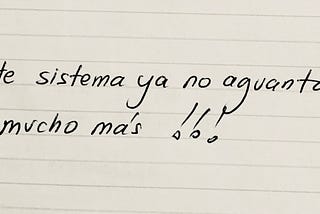 te sistema ya no aguanta
mucho más !!!